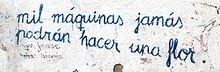 mil máquinas jamás
podrán hacer una flor.